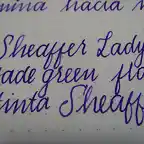 mina hacia
Sheaffer Lady
ade green fla
tinta Sheaff